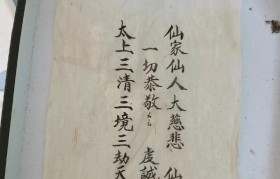 仙家仙人大慈悲 仙
一切恭敬〻 虔誠
太上三清三境三劫天